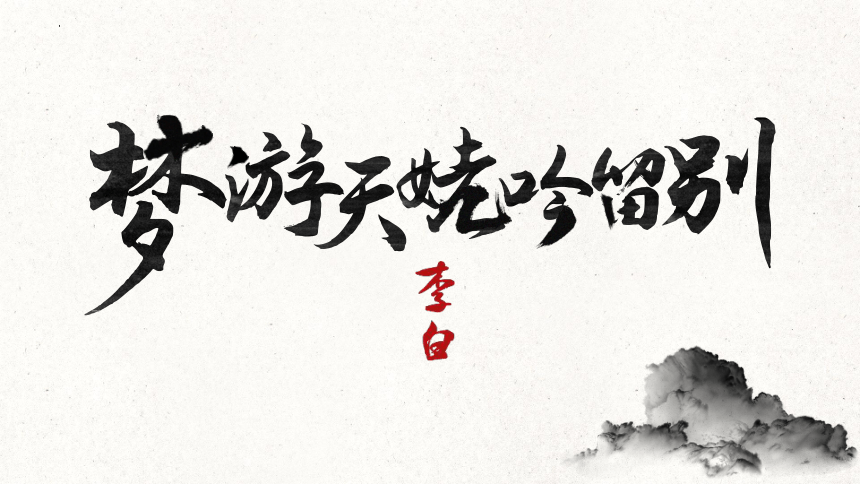 梦游天姥吟留别
李白